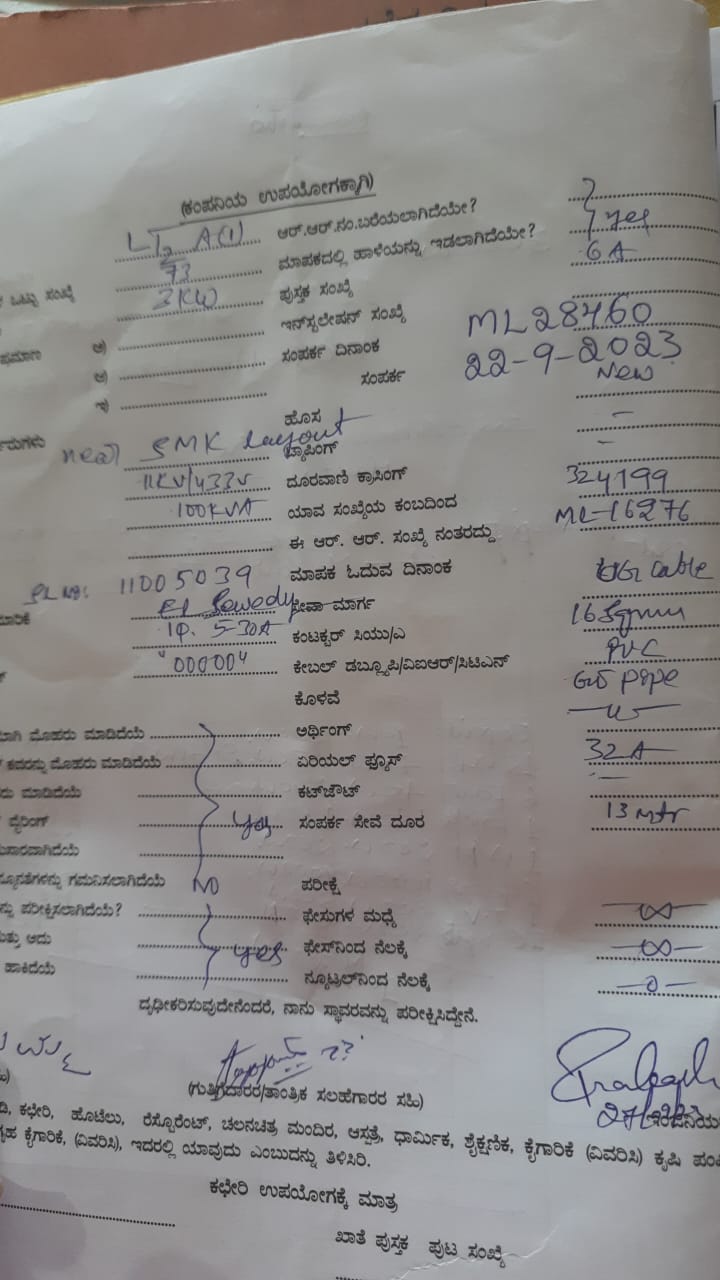 (ಕಂಪನಿಯ ಉಪಯೋಗಕ್ಕಾಗಿ)
LT2 A(1) ಆರ್.ಆರ್.ನಂ.ಬರೆಯಲಾಗಿದೆಯೇ?
ಒಟ್ಟು ಸಂಖ್ಯೆ 73 ಮಾಪಕದಲ್ಲಿ ಹಾಳೆಯನ್ನು ಇಡಲಾಗಿದೆಯೇ? yes
3KW ಪುಸ್ತಕ ಸಂಖ್ಯೆ 6A
ಅ) ಇನ್‌ಸ್ಟಲೇಷನ್ ಸಂಖ್ಯೆ ML28460
ಆ) ಸಂಪರ್ಕ ದಿನಾಂಕ 22-9-2023
ಇ) ಸಂಪರ್ಕ New
ಹೊಸ –
near SMK layout ಟ್ಯಾಪಿಂಗ್ –
11KV/433V ದೂರವಾಣಿ ಕ್ರಾಸಿಂಗ್
100KVA ಯಾವ ಸಂಖ್ಯೆಯ ಕಂಬದಿಂದ 324199
ಈ ಆರ್. ಆರ್. ಸಂಖ್ಯೆ ನಂತರದ್ದು ML-16276
SL NO: 11005039 ಮಾಪಕ ಓದುವ ದಿನಾಂಕ
El Sewedy ಸೇವಾ ಮಾರ್ಗ UG cable
1φ. 5-30A ಕಂಟಕ್ಟರ್ ಸಿಯು/ಎ 16 Sqmm
"00000" ಕೇಬಲ್ ಡಬ್ಲ್ಯೂಪಿ/ವಿಐಆರ್/ಸಿಟಿಎನ್ PVC
ಕೊಳವೆ GI pipe
ಮೊಹರು ಮಾಡಿದೆಯೆ ಅರ್ಥಿಂಗ್ –u–
ಕವರನ್ನು ಮೊಹರು ಮಾಡಿದೆಯೆ ಏರಿಯಲ್ ಫ್ಯೂಸ್ 32A
ಮಾಡಿದೆಯೆ ಕಟ್‌ಔಟ್ –
ವೈರಿಂಗ್ yes ಸಂಪರ್ಕ ಸೇವೆ ದೂರ 13 mtr
ಗಮನಿಸಲಾಗಿದೆಯೆ NO ಪರೀಕ್ಷೆ
ಪರೀಕ್ಷಿಸಲಾಗಿದೆಯೆ? ಫೇಸುಗಳ ಮಧ್ಯೆ –∞–
ಮತ್ತು ಅದು yes ಫೇಸ್‌ನಿಂದ ನೆಲಕ್ಕೆ –∞–
ಹಾಕಿದೆಯೆ ನ್ಯೂಟ್ರಲ್‌ನಿಂದ ನೆಲಕ್ಕೆ –0–
ದೃಢೀಕರಿಸುವುದೇನೆಂದರೆ, ನಾನು ಸ್ಥಾವರವನ್ನು ಪರೀಕ್ಷಿಸಿದ್ದೇನೆ.
(ಗುತ್ತಿಗೆದಾರರ/ತಾಂತ್ರಿಕ ಸಲಹೆಗಾರರ ಸಹಿ)
ಕಛೇರಿ, ಹೊಟೆಲು, ರೆಸ್ಟೋರೆಂಟ್, ಚಲನಚಿತ್ರ ಮಂದಿರ, ಆಸ್ಪತ್ರೆ, ಧಾರ್ಮಿಕ, ಶೈಕ್ಷಣಿಕ, ಕೈಗಾರಿಕೆ (ವಿವರಿಸಿ) ಕೃಷಿ ಪಂ
ಗೃಹ ಕೈಗಾರಿಕೆ, (ವಿವರಿಸಿ), ಇದರಲ್ಲಿ ಯಾವುದು ಎಂಬುದನ್ನು ತಿಳಿಸಿರಿ.
ಕಛೇರಿ ಉಪಯೋಗಕ್ಕೆ ಮಾತ್ರ
ಖಾತೆ ಪುಸ್ತಕ ಪುಟ ಸಂಖ್ಯೆ